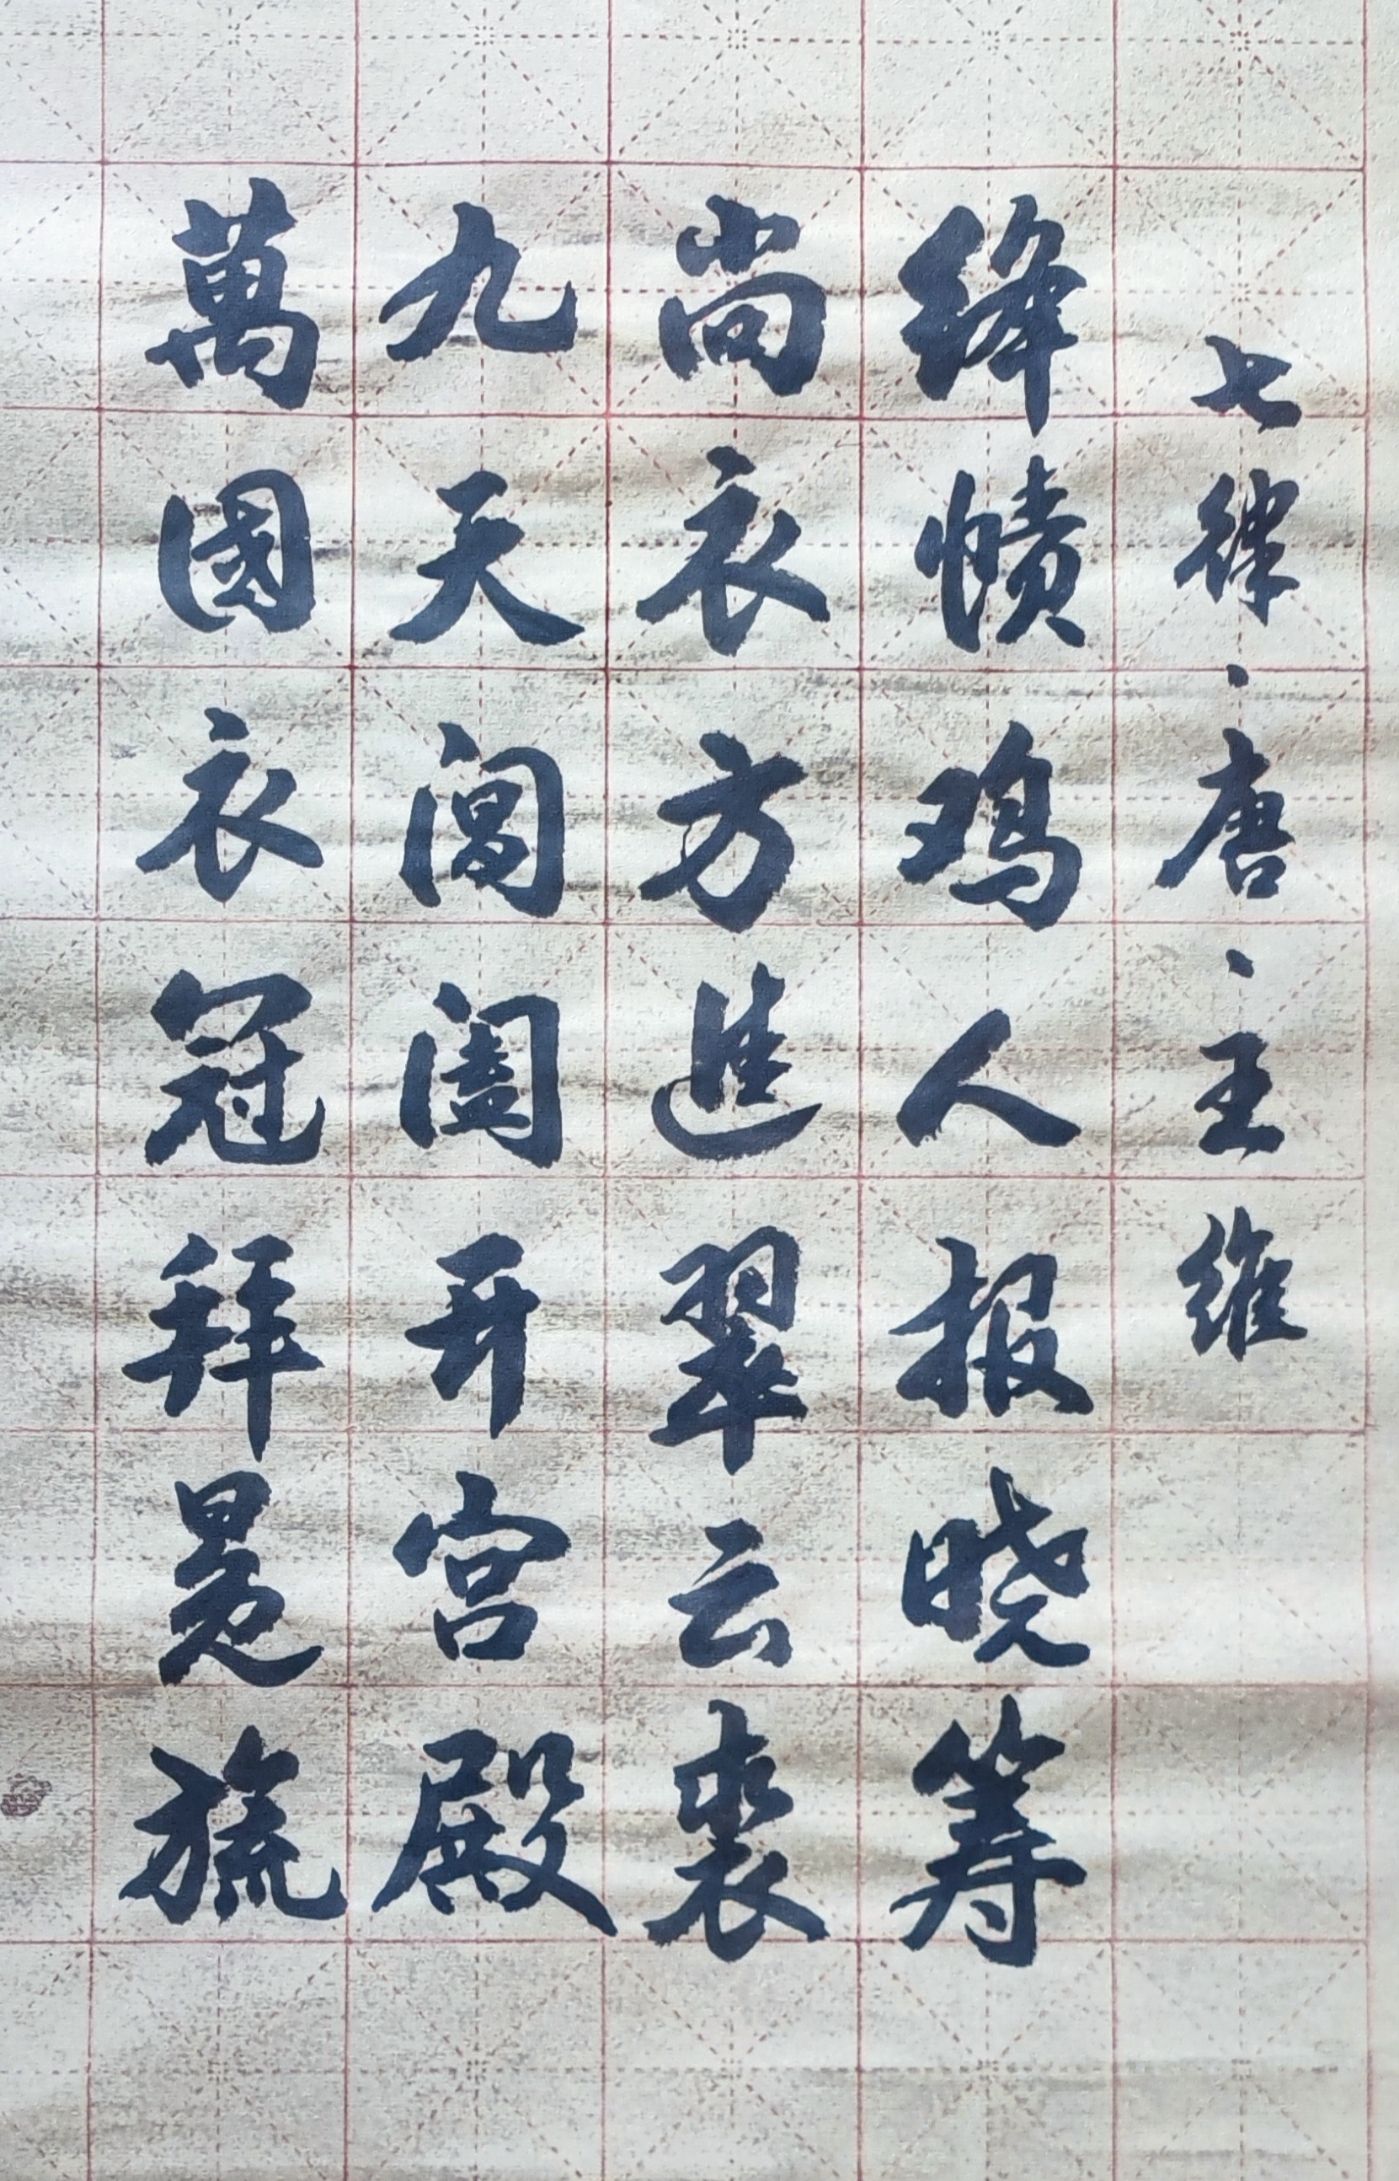 七律·唐·王维
绛帻鸡人报晓筹
尚衣方進翠云裘
九天阊阖开宫殿
萬國衣冠拜冕旒